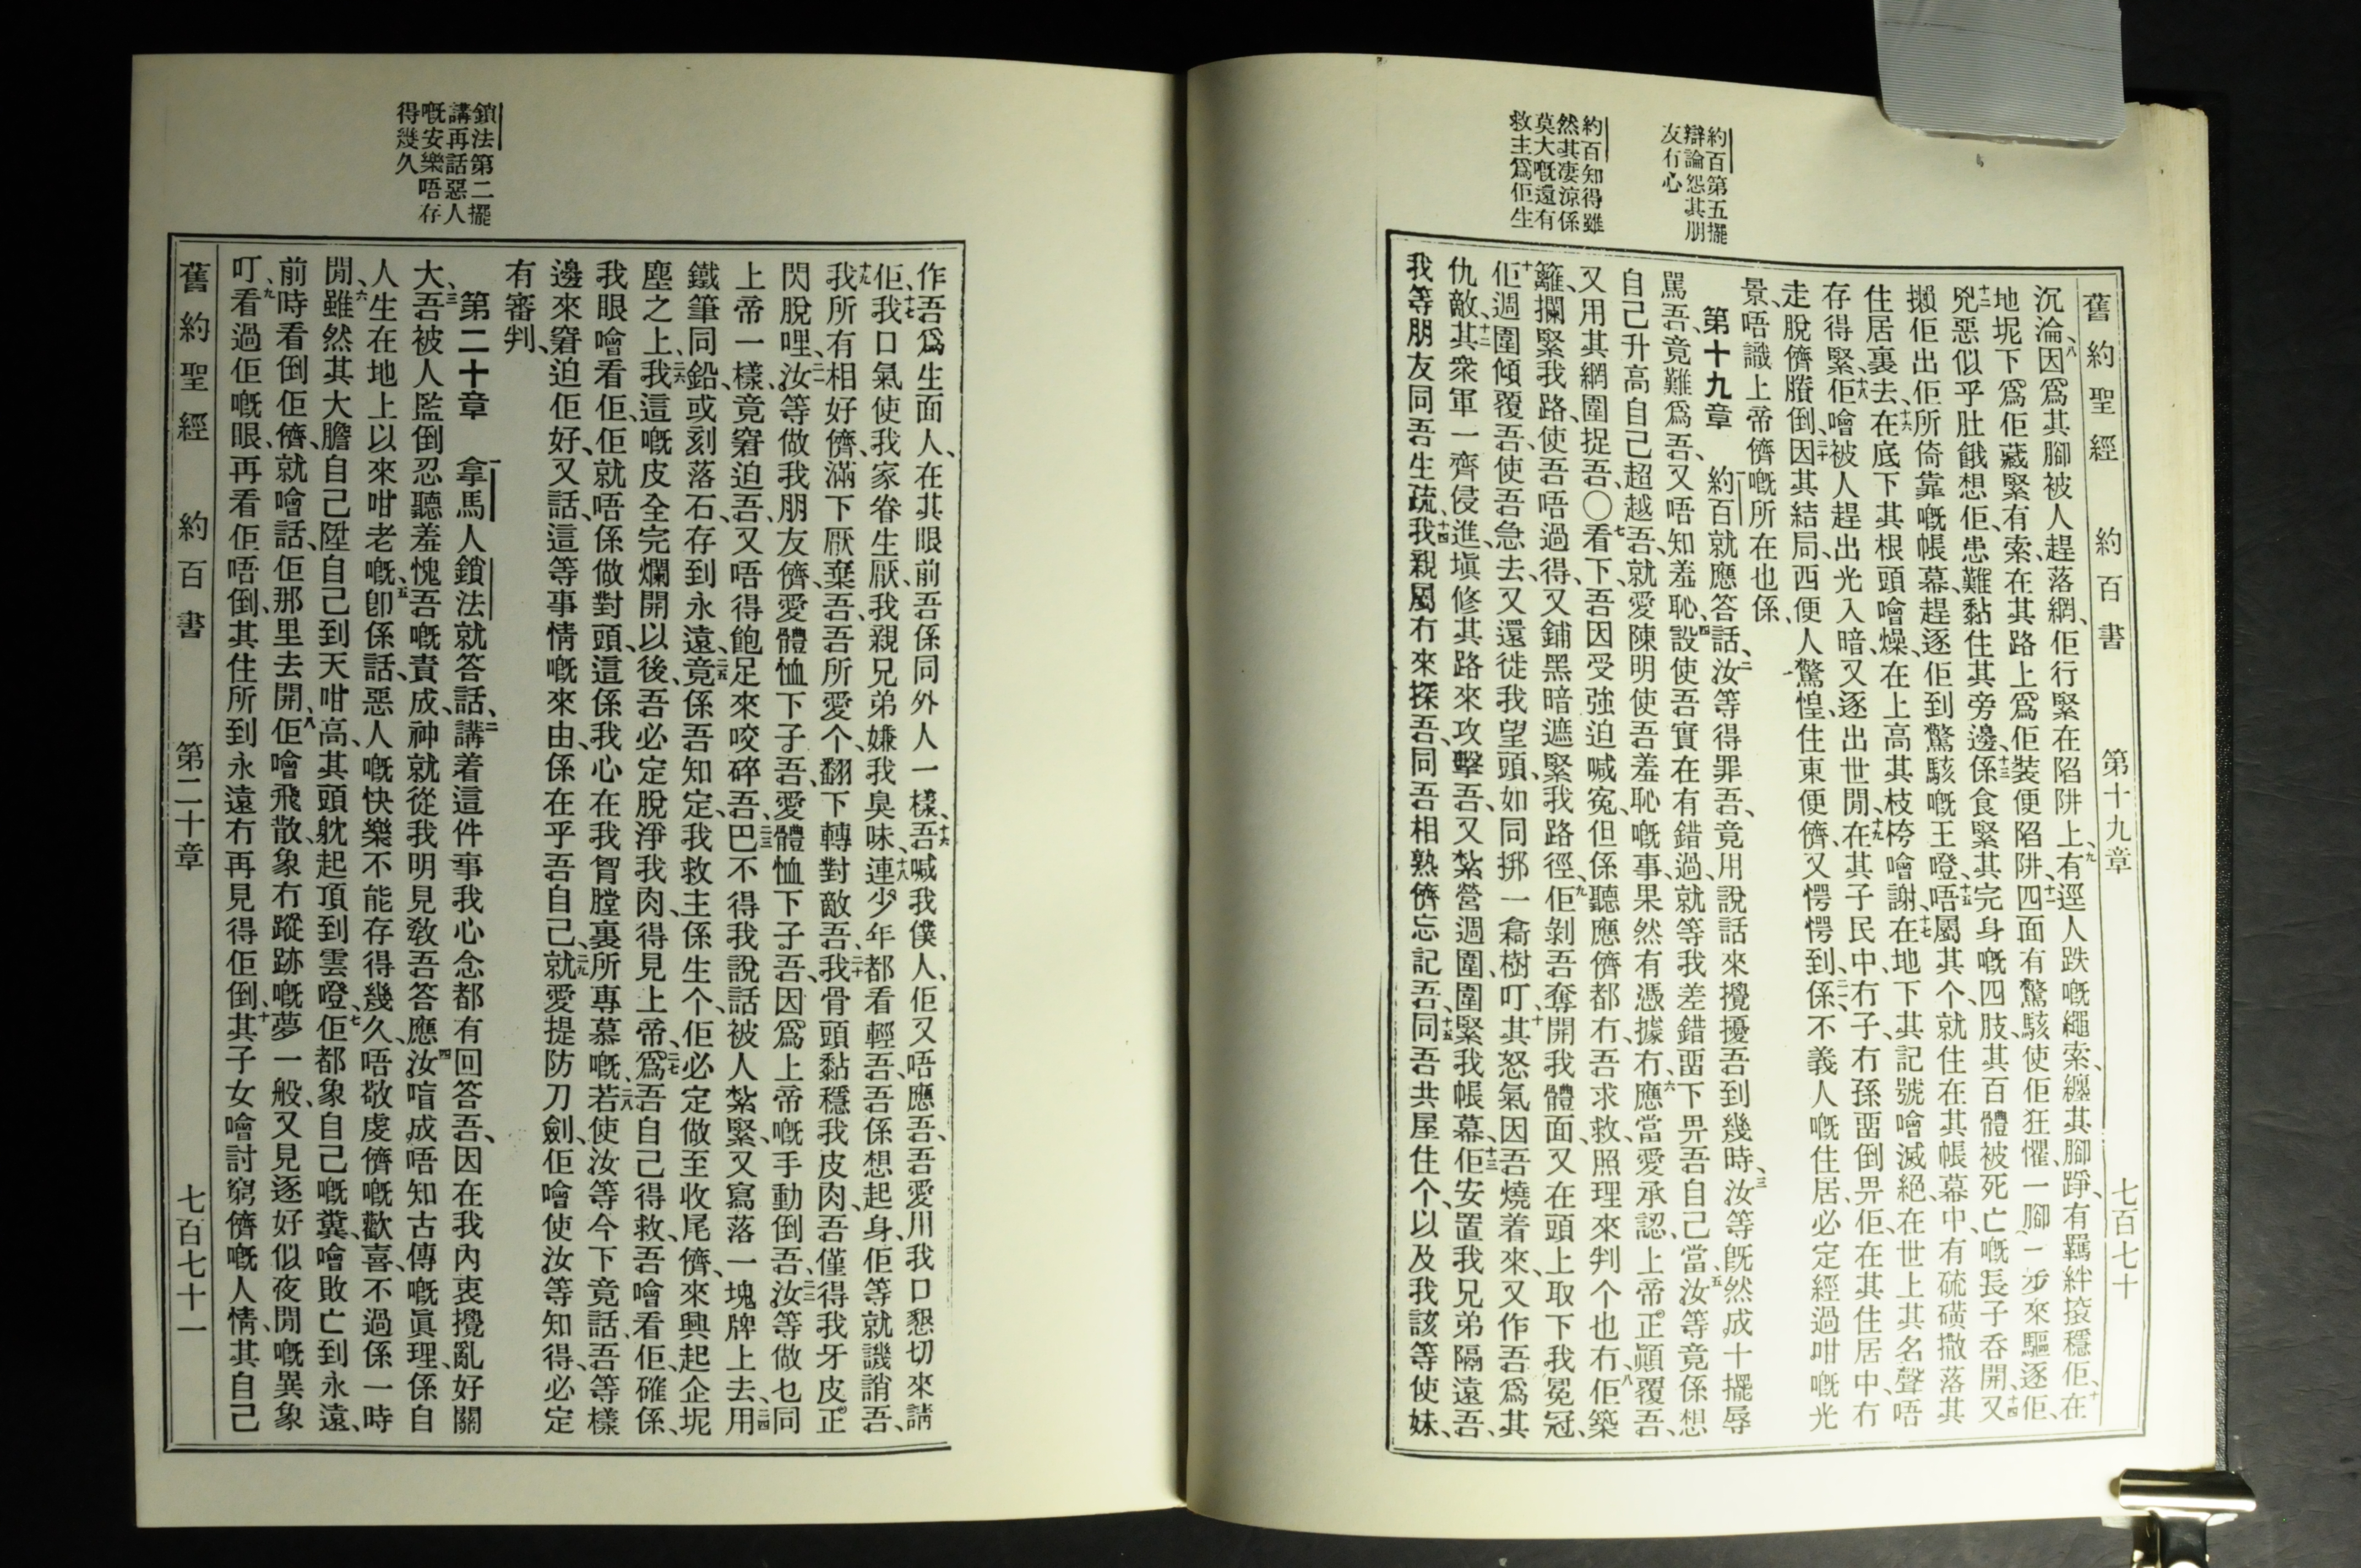 舊約聖經 約百書 第十九章 七百七十
約百第五擺
辯論怨其朋
友冇心
約百知得雖
然其凄涼係
莫大嘅還有
救主爲佢生
沉淪、八因爲其腳被人趕落網、佢行緊在陷阱上、九有逕人跌嘅繩索、纏其腳踭、有羈絆𢲷穩佢、十在
地坭下爲佢藏緊有索、在其路上爲佢裝便陷阱、十一四面有驚駭使佢狂懼、一腳一步來驅逐佢、
十二兇惡似乎肚餓想佢、患難黏住其旁邊、十三係食緊其完身嘅四肢、其百體被死亡嘅長子吞開、十四又
擬佢出佢所倚靠嘅帳幕、趕逐佢到驚駭嘅王噔、十五唔屬其个、就住在其帳幕中、有硫磺撒落其
住居裏去、十六在底下其根頭噲燥、在上高其枝桍噲謝、十七在地下其記號噲滅絕、在世上其名聲唔
存得緊、十八佢噲被人趕出光入暗、又逐出世閒、十九在其子民中、冇子冇孫畱倒畀佢、在其住居中、冇
走脫儕賸倒、二十因其結局、西便人驚惶、住東便儕、又愕愕到、二一係不義人嘅住居、必定經過咁嘅光
景、唔識上帝儕嘅所在也係、
第十九章 一約百就應答話、二汝等得罪吾、竟用說話來攪擾吾到幾時、三汝等旣然成十擺辱
罵吾、竟難爲吾、又唔知羞恥、四設使吾實在有錯過、就等我差錯畱下畀吾自己當、五汝等竟係想
自己升高自己超越吾、就愛陳明使吾羞恥嘅事、果然有憑據冇、六應當愛承認、上帝正顚覆吾、
又用其網圍捉吾、〇七看下、吾因受強迫喊冤、但係聽應儕都冇、吾求救、照理來判个也冇、八佢築
籬攔緊我路、使吾唔過得、又鋪黑暗遮緊我路徑、九佢剝吾奪開我體面、又在頭上取下我冕冠、
十佢週圍傾覆吾、使吾急去、又還徙我望頭、如同挷一兜樹叮、十一其怒氣因吾燒着來、又作吾爲其
仇敵、十二其衆軍一齊侵進、塡修其路來攻擊吾、又紮營週圍、圍緊我帳幕、十三佢安置我兄弟隔遠吾、
我等朋友同吾生疏、十四我親屬冇來探吾、同吾相熟儕忘記吾、十五同吾共屋住个、以及我該等使妹、
鎖法第二擺
講再話惡人
嘅安樂唔存
得幾久
作吾爲生面人、在其眼前吾係同外人一樣、十六吾喊我僕人、佢又唔應吾、吾愛用我口懇切來請
佢、十七我口氣使我家眷生厭、我親兄弟嫌我臭味、十八連少年都看輕吾、吾係想起身、佢等就譏誚吾、
十九我所有相好儕、滿下厭棄吾、吾所愛个、翻下轉對敵吾、二十我骨頭黏穩我皮肉、吾僅得我牙皮正
閃脫哩、二一汝等做我朋友儕、愛體恤下子吾、愛體恤下子吾、因爲上帝嘅手動倒吾、二二汝等做乜同
上帝一樣、竟窘迫吾、又唔得飽足來咬碎吾、二三巴不得我說話被人紮緊、又寫落一塊牌上去、二四用
鐵筆同鉛、或刻落石、存到永遠、二五竟係吾知定、我救主係生个、佢必定做至收尾儕、來興起企坭
塵之上、二六我這嘅皮全完爛開以後、吾必定脫淨我肉、得見上帝、二七爲吾自己得救、吾噲看佢、確係、
我眼噲看佢、佢就唔係做對頭、這係我心在我胷膛裏所專慕嘅、二八若使汝等今下竟話、吾等樣
邊來窘迫佢好、又話、這等事情嘅來由、係在乎吾自己、二九就愛提防刀劍、佢噲使汝等知得、必定
有審判、
第二十章 一拿馬人鎖法就答話、二講着這件事、我心念都有回答吾、因在我內衷攪亂好關
大、三吾被人監倒忍聽羞愧吾嘅責成、神就從我明見敎吾答應、四汝喑成唔知古傳嘅眞理、係自
人生在地上以來咁老嘅、五卽係話、惡人嘅快樂不能存得幾久、唔敬虔儕嘅歡喜、不過係一時
閒、六雖然其大膽自己陞自己到天咁高、其頭躭起頂到雲噔、七佢都象自己嘅糞、噲敗亡到永遠、
前時看倒佢儕、就噲話、佢那里去開、八佢噲飛散、象冇蹤跡嘅夢一般、又見逐好似夜閒嘅異象
叮、九看過佢嘅眼、再看佢唔倒、其住所到永遠冇再見得佢倒、十其子女噲討窮儕嘅人情、其自己
舊約聖經 約百書 第二十章 七百七十一